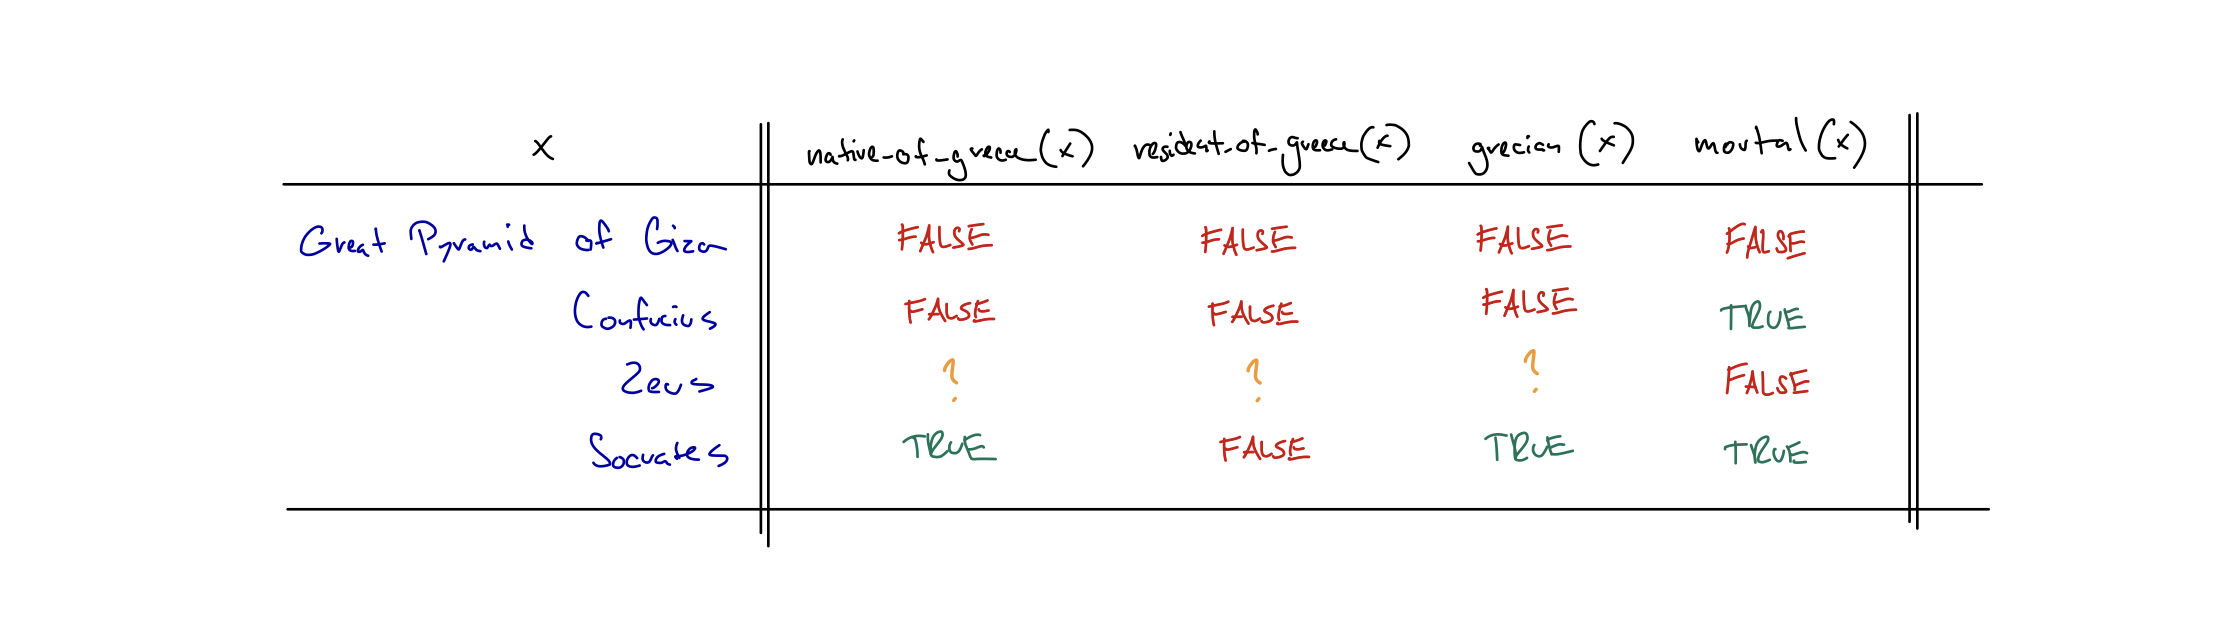 x native-of-greece(x) resident-of-greece(x) grecian (x) mortal (x)
Great Pyramid of Giza FALSE FALSE FALSE FALSE
Confucius FALSE FALSE FALSE TRUE
Zeus ? ? ? FALSE
Socrates TRUE FALSE TRUE TRUE